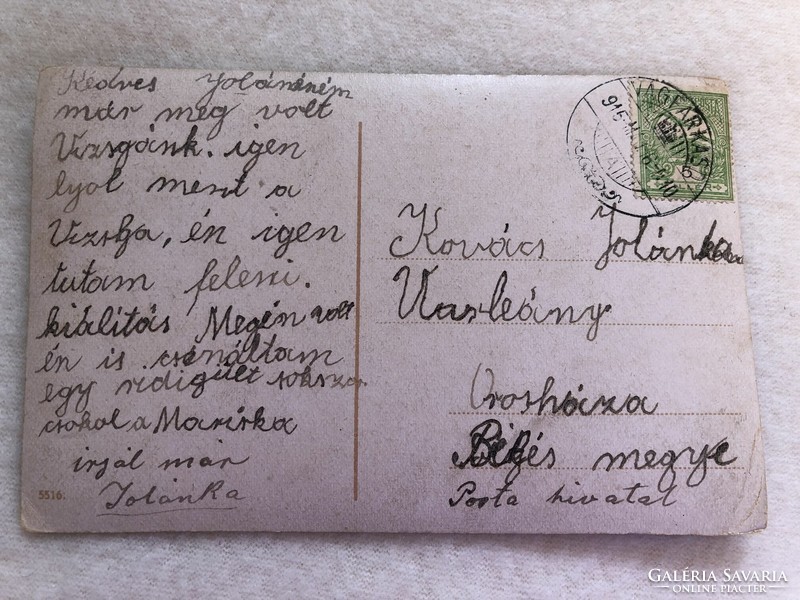 Kedves Jolánném
már meg volt
Vizsgánk. igen
lyol ment a
Vizsga, én igen
tutam feleni.
kiálitás Megén volt
én is csináltam
egy ridigült sokszor
csokol a Mariska
irjál már
Jolánka
5516.
Kovács Jolánka
Urleány
Orosháza
Békés megye
Posta hivatal
GALÉRIA SAVARIA
ONLINE PIACTÉR